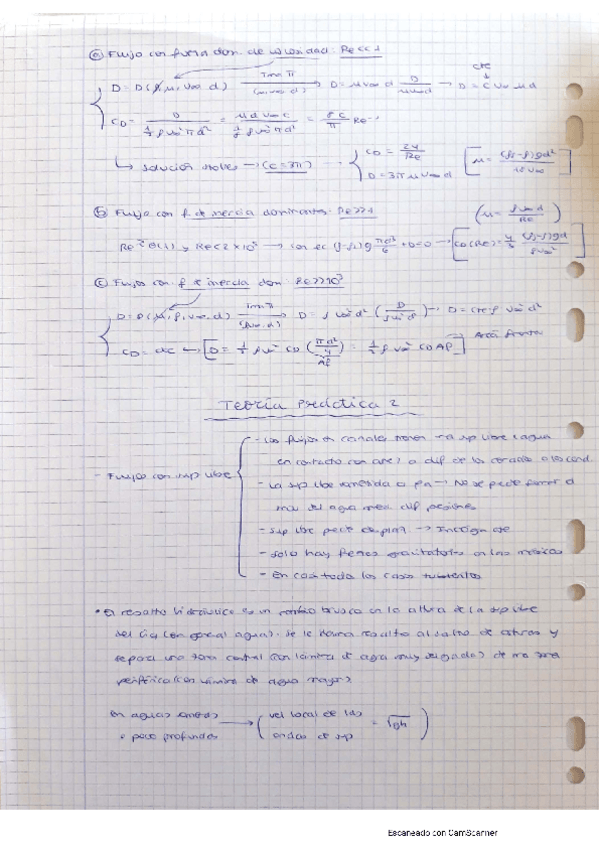 a) Flujo con fuerza dom. de viscosidad: Re<<1
D = D(ρ, μ, V∞, d) → Tma π (μ, V∞, d) → D = μ V∞ d D/(μ V∞ d) → D = C V∞ μ d
cte
C_D = D/(½ρV∞²πd²) = μ d V∞ C/(½ρV∞²πd²) = C/π Re⁻¹
↳ solución Stokes → (C=3π) → { C_D = 24/Re
D = 3π μ V∞ d
[μ = (ρs-ρ)gd²/18V∞]
b) Flujo con f. de inercia dominantes: Re>>1
(μ = ρV∞d/Re)
Re ~ θ(1) y Re<2×10⁵ → con ec (ρ-ρs)g πd³/6 + D=0 → [C_D(Re) = 4/3 (ρs-ρ)gd/ρV∞²]
c) Flujos con f de inercia dom: Re>>10³
D = D(μ, ρ, V∞, d) → Tma π (ρ, V∞, d) → D = ρ V∞² d² (D/ρV∞²d²) → D = cte ρ V∞² d²
C_D = cte → [D = ½ ρ V∞² C_D (πd²/4) = ½ ρ V∞² C_D Af] → Area frontal
Af
Teoría Práctica 2
- Flujos con sup libre
- Los flujos en canales tienen una sup libre (agua
en contacto con aire) a dif de los cerrados o los cond.
- La sup libre sometida a pa → No se puede forzar el
mov del agua med. dif presiones
- Sup libre puede → Incógnita
- Solo hay fuerzas gravitatorias en las másicas
- En casi todos los casos turbulentos
• El resalto hidráulico es un cambio brusco en la altura de la sup libre
del liq (en general agua). Se le llama resalto al salto de alturas y
separa una zona central (con lámina de agua muy delgada) de una zona
periférica (con lámina de agua mayor).
En aguas someras
o poco profundas → ( vel local de las
ondas de sup = √gh )
Escaneado con CamScanner